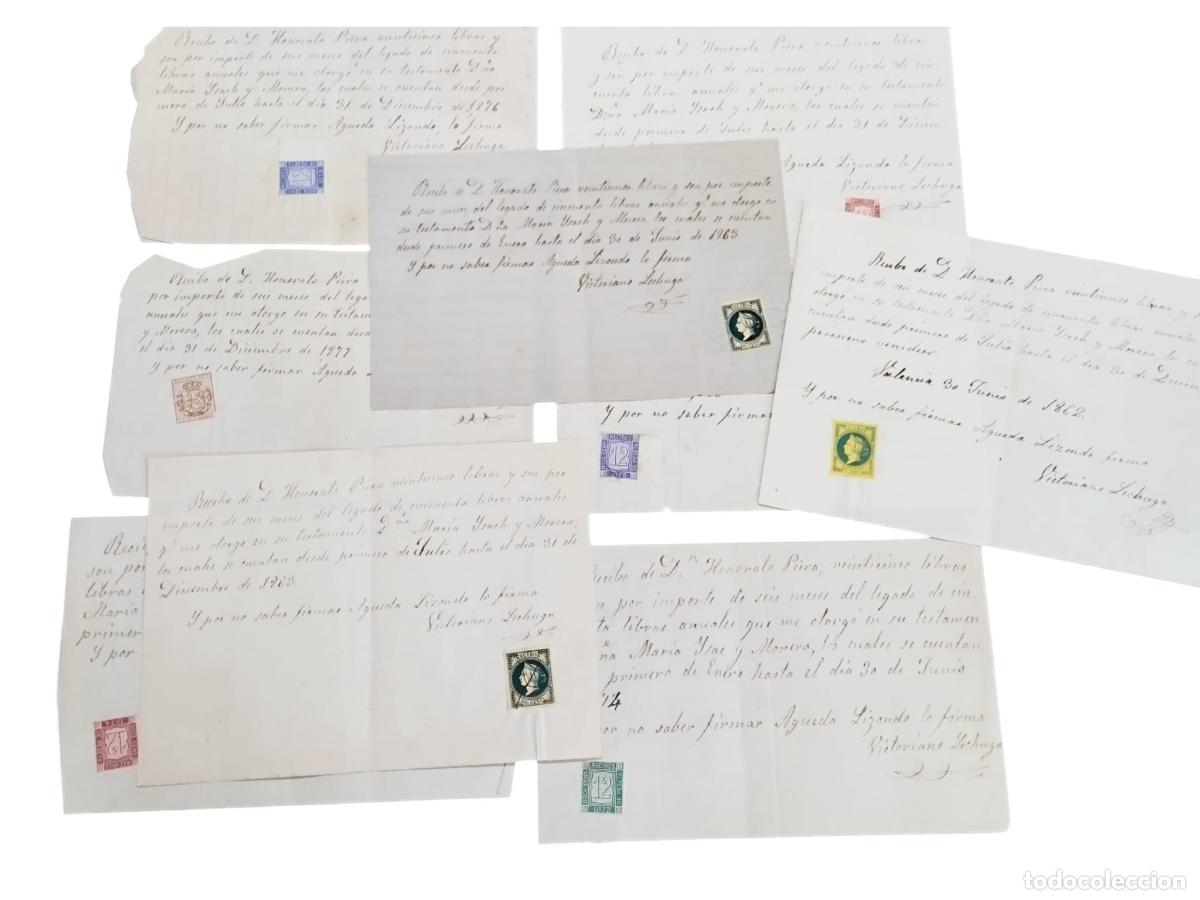 Recibo de D. Honorato Piera veinticinco libras y
son por importe de seis meses del legado de cincuenta
libras anuales que me otorgó en su testamento Dña
María Ysach y Morera, los cuales se cuentan desde pri
mero de Julio hasta el día 31 de Diciembre de 1876
Y por no saber firmar Agueda Lizondo, lo firma
Victoriano Lechuga
Recibo de D. Honorato Piera veinticinco libras
y son por importe de seis meses del legado de cin
cuenta libras anuales q.e me otorgó en su testamento
Dña María Ysach y Morera, los cuales se cuentan
desde primero de Julio hasta el día 31 de Diciem
Agueda Lizondo lo firma
Victoriano Lechuga
Recibo de D. Honorato Piera veinticinco libras y son por importe
de seis meses del legado de cincuenta libras anuales q.e me otorgo en
su testamento Dña María Ysach y Morera, los cuales se cuentan
desde primero de Enero hasta el día 30 de Junio de 1863
Y por no saber firmar Agueda Lizondo lo firma
Victoriano Lechuga
Recibo de D. Honorato Piera
por importe de seis meses del lega
anuales que me otorgo en su testam
y Morera, los cuales se cuentan desd
el día 31 de Diciembre de 1877
Y por no saber firmar Agueda
Recibo de D. Honorato Piera veinticinco libras, y s
importe de seis meses del legado de cincuenta libras anuales
otorgo en su testamento Dña María Ysach y Morera, los cu
cuentan desde primero de Julio hasta el día 30 de Diciem
procsimo venidero
Valencia 30 Junio de 1862.
Y por no saber firmar Agueda Lizondo firma
Victoriano Lechuga
Y por no saber firmar
RECIBOS
12
Recibo de D. Honorato Piera veinticinco libras, y son por
importe de seis meses del legado de cincuenta libras anuales
q.e me otorgo en su testamento Dña María Ysach y Morera,
los cuales se cuentan desde primero de Julio hasta el día 31 de
Diciembre de 1863
Y por no saber firmar Agueda Lizondo lo firma
Victoriano Lechuga
Reci
son por
libras
María
primer
Y por
Recibo de D.n Honorato Piera, veinticinco libras
n por importe de seis meses del legado de cin
ta libras anuales que me otorgó en su testamen
ña María Ysac y Morera, los cuales se cuentan
primero de Enero hasta el día 30 de Junio
74
or no saber firmar Agueda Lizondo lo firma
Victoriano Lechuga
RECIBOS
12
DE PESETA
1873
todocoleccion